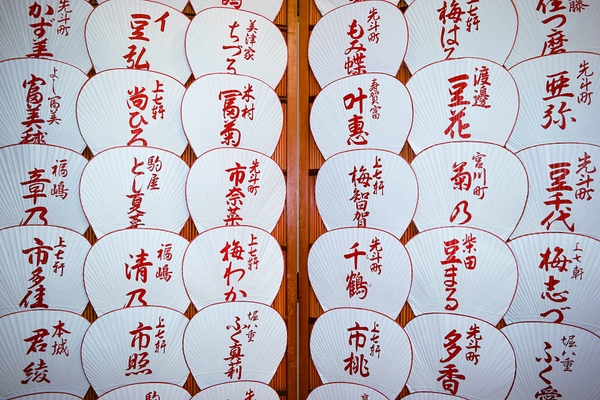 先斗町
かず美
豆弘
美津家
ちづる
先斗町
もみ蝶
上七軒
梅はる
佳つ磨
よし富美
富美毬
上七軒
尚ひろ
米村
冨菊
寿賀富
叶惠
渡邊
豆花
先斗町
亜弥
福嶋
章乃
駒屋
先斗町
市奈菜
上七軒
梅智賀
宮川町
菊乃
先斗町
豆千代
上七軒
市多佳
福嶋
清乃
上七軒
梅わか
先斗町
千鶴
柴田
豆まる
上七軒
梅志づ
本城
君綾
上七軒
市照
堀八重
ふく真莉
上七軒
市桃
先斗町
多香
堀八重
ふく愛